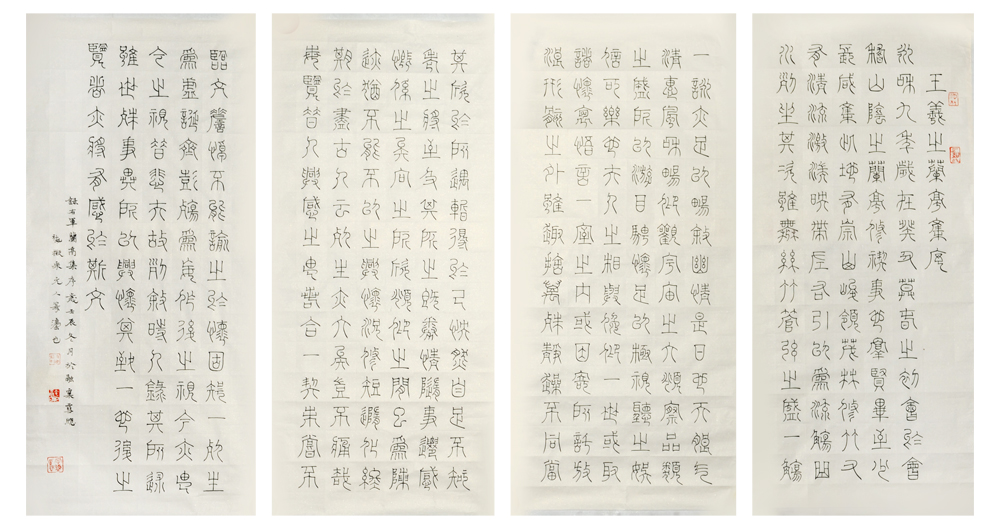 王羲之蘭亭集序
永和九年歲在癸丑暮春之初會於會
稽山陰之蘭亭修禊事也羣賢畢至少
長咸集此地有崇山峻領茂林修竹又
有清流激湍映帶左右引以為流觴曲
水列坐其次雖無絲竹管弦之盛一觴
一詠亦足以暢敘幽情是日也天朗氣
清惠風和暢仰觀宇宙之大俯察品類
之盛所以遊目騁懷足以極視聽之娛
信可樂也夫人之相與俯仰一世或取
諸懷抱悟言一室之內或因寄所託放
浪形骸之外雖趣捨萬殊靜躁不同當
其欣於所遇暫得於己快然自足不知
老之將至及其所之既倦情隨事遷感
慨係之矣向之所欣俯仰之間已為陳
迹猶不能不以之興懷況修短隨化終
期於盡古人云死生亦大矣豈不痛哉
每覽昔人興感之由若合一契未嘗不
臨文嗟悼不能喻之於懷固知一死生
為虛誕齊彭殤為妄作後之視今亦由
今之視昔悲夫故列敘時人錄其所述
雖世殊事異所以興懷其致一也後之
覽者亦將有感於斯文
錄右軍蘭亭集序歲壬辰